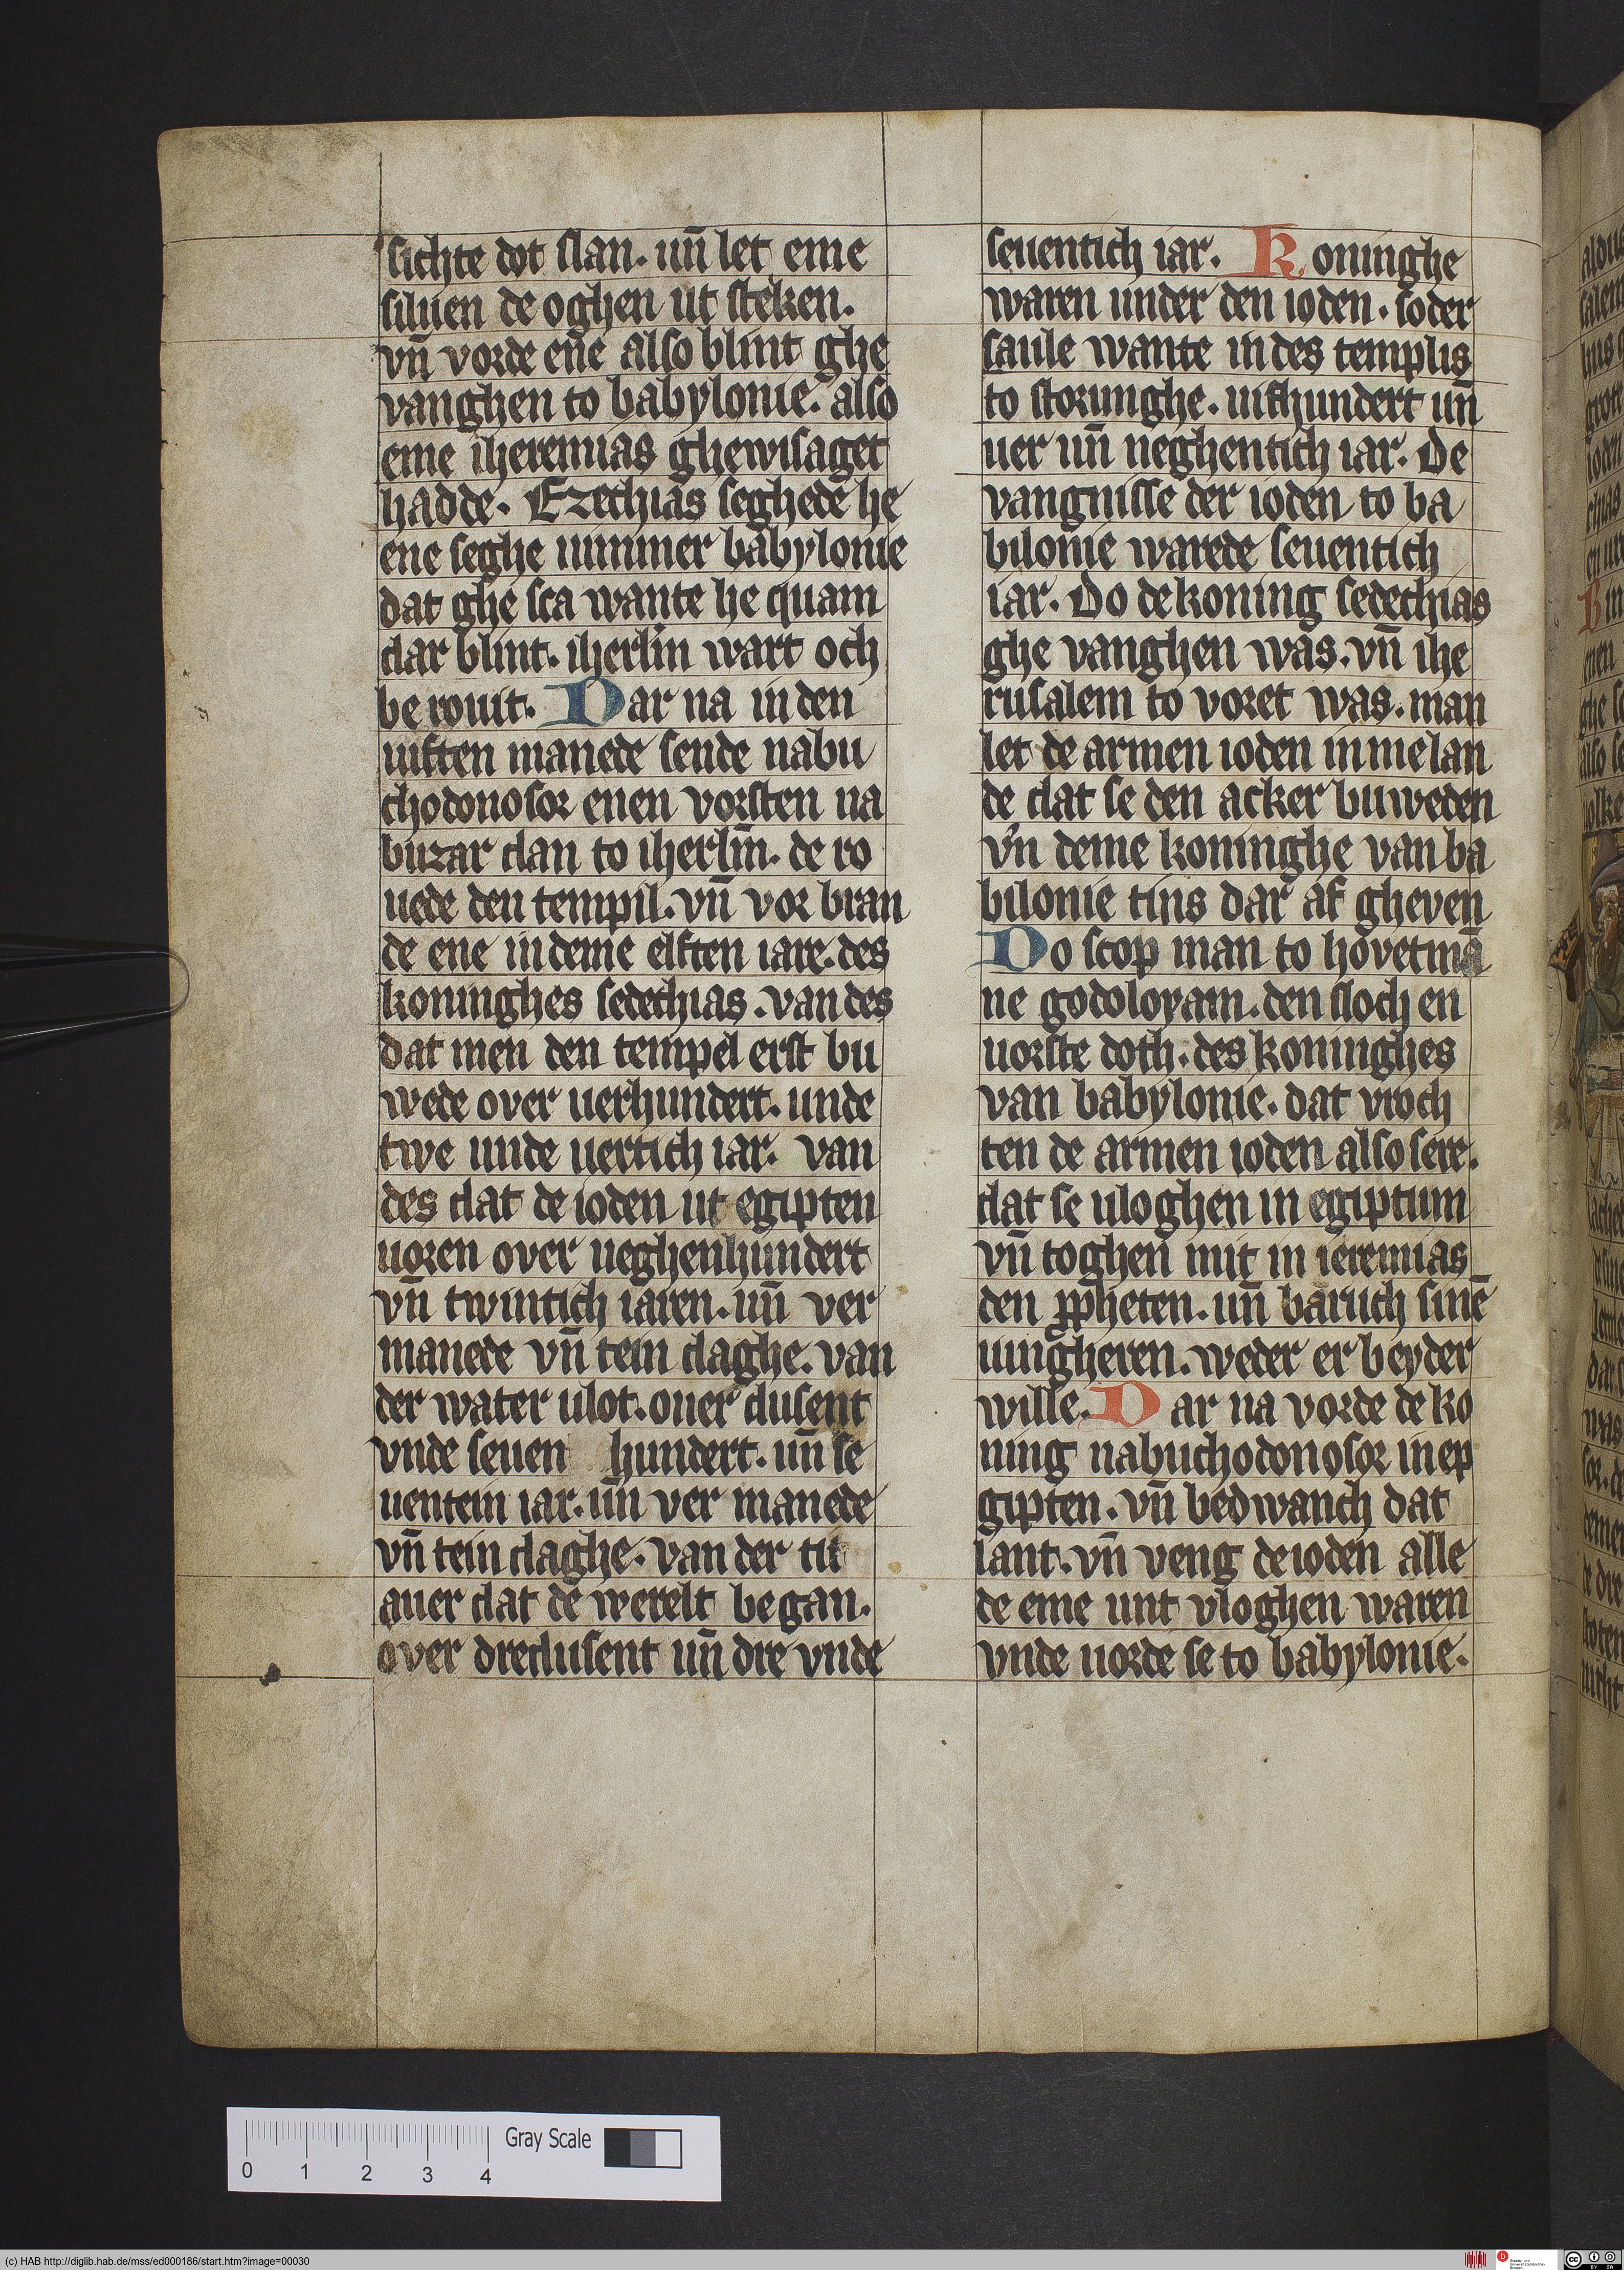 sichte dot slan. un̄ let eme
siluen de oghen ut steken.
vn̄ vorde ene also blint ghe
vanghen to babylonie. also
eme iheremias ghewisaget
hadde. Ezechias seghede he
ene seghe nimmer babylonie
dat ghe sca wante he quam
dar blint. iherlm̄ wart och
be rouit. Dar na in den
uiften manede sende nabu
chodonosor enen vorsten na
buzar dan to iherlm̄. de ro
uede den tempil. vn̄ vor bran
de ene in deme elften iare. des
koninghes sedechias. van des
dat men den tempel erst bu
wede over uerhundert. unde
twe unde uertich iar. van
des dat de ioden ut egipten
uoren over neghenhundert
vn̄ twintich iaren. un̄ ver
manede vn̄ tein daghe. van
der water ulot. ouer dusent
vnde seuen hundert. un̄ se
uentein iar. un̄ ver manede
vn̄ tein daghe. van der tit
auer dat de werelt be gan.
over dredusent un̄ dre vnde
seuentich iar. Koninghe
waren under den ioden. soder
saule wante in des templis
to storunghe. uifhundert un̄
uer un̄ neghentich iar. De
vangnisse der ioden to ba
bilonie warede seuentich
iar. Do de koning sedechias
ghe vanghen was. vn̄ ihe
rusalem to voret was. man
let de armen ioden in me lan
de dat se den acker buweden
vn̄ deme koninghe van ba
bilonie tins dar af gheven
Do scop man to hovetmā
ne godoloyam. den sloch en
uorste doth. des koninghes
van babylonie. dat vroch
ten de armen ioden also sere.
dat se uloghen in egiptum
vn̄ toghen mit in ieremias
den ꝓpheten. un̄ baruch sinē
iungheren. weder er beyder
wille. Dar na vorde de ko
ning nabuchodonosor in ep
gipten. vn̄ bedwanch dat
lant. vn̄ veng de ioden alle
de eme unt vloghen waren
vnde uorde se to babylonie.
0 1 2 3 4
Gray Scale
(c) HAB http://diglib.hab.de/mss/ed000186/start.htm?image=00030